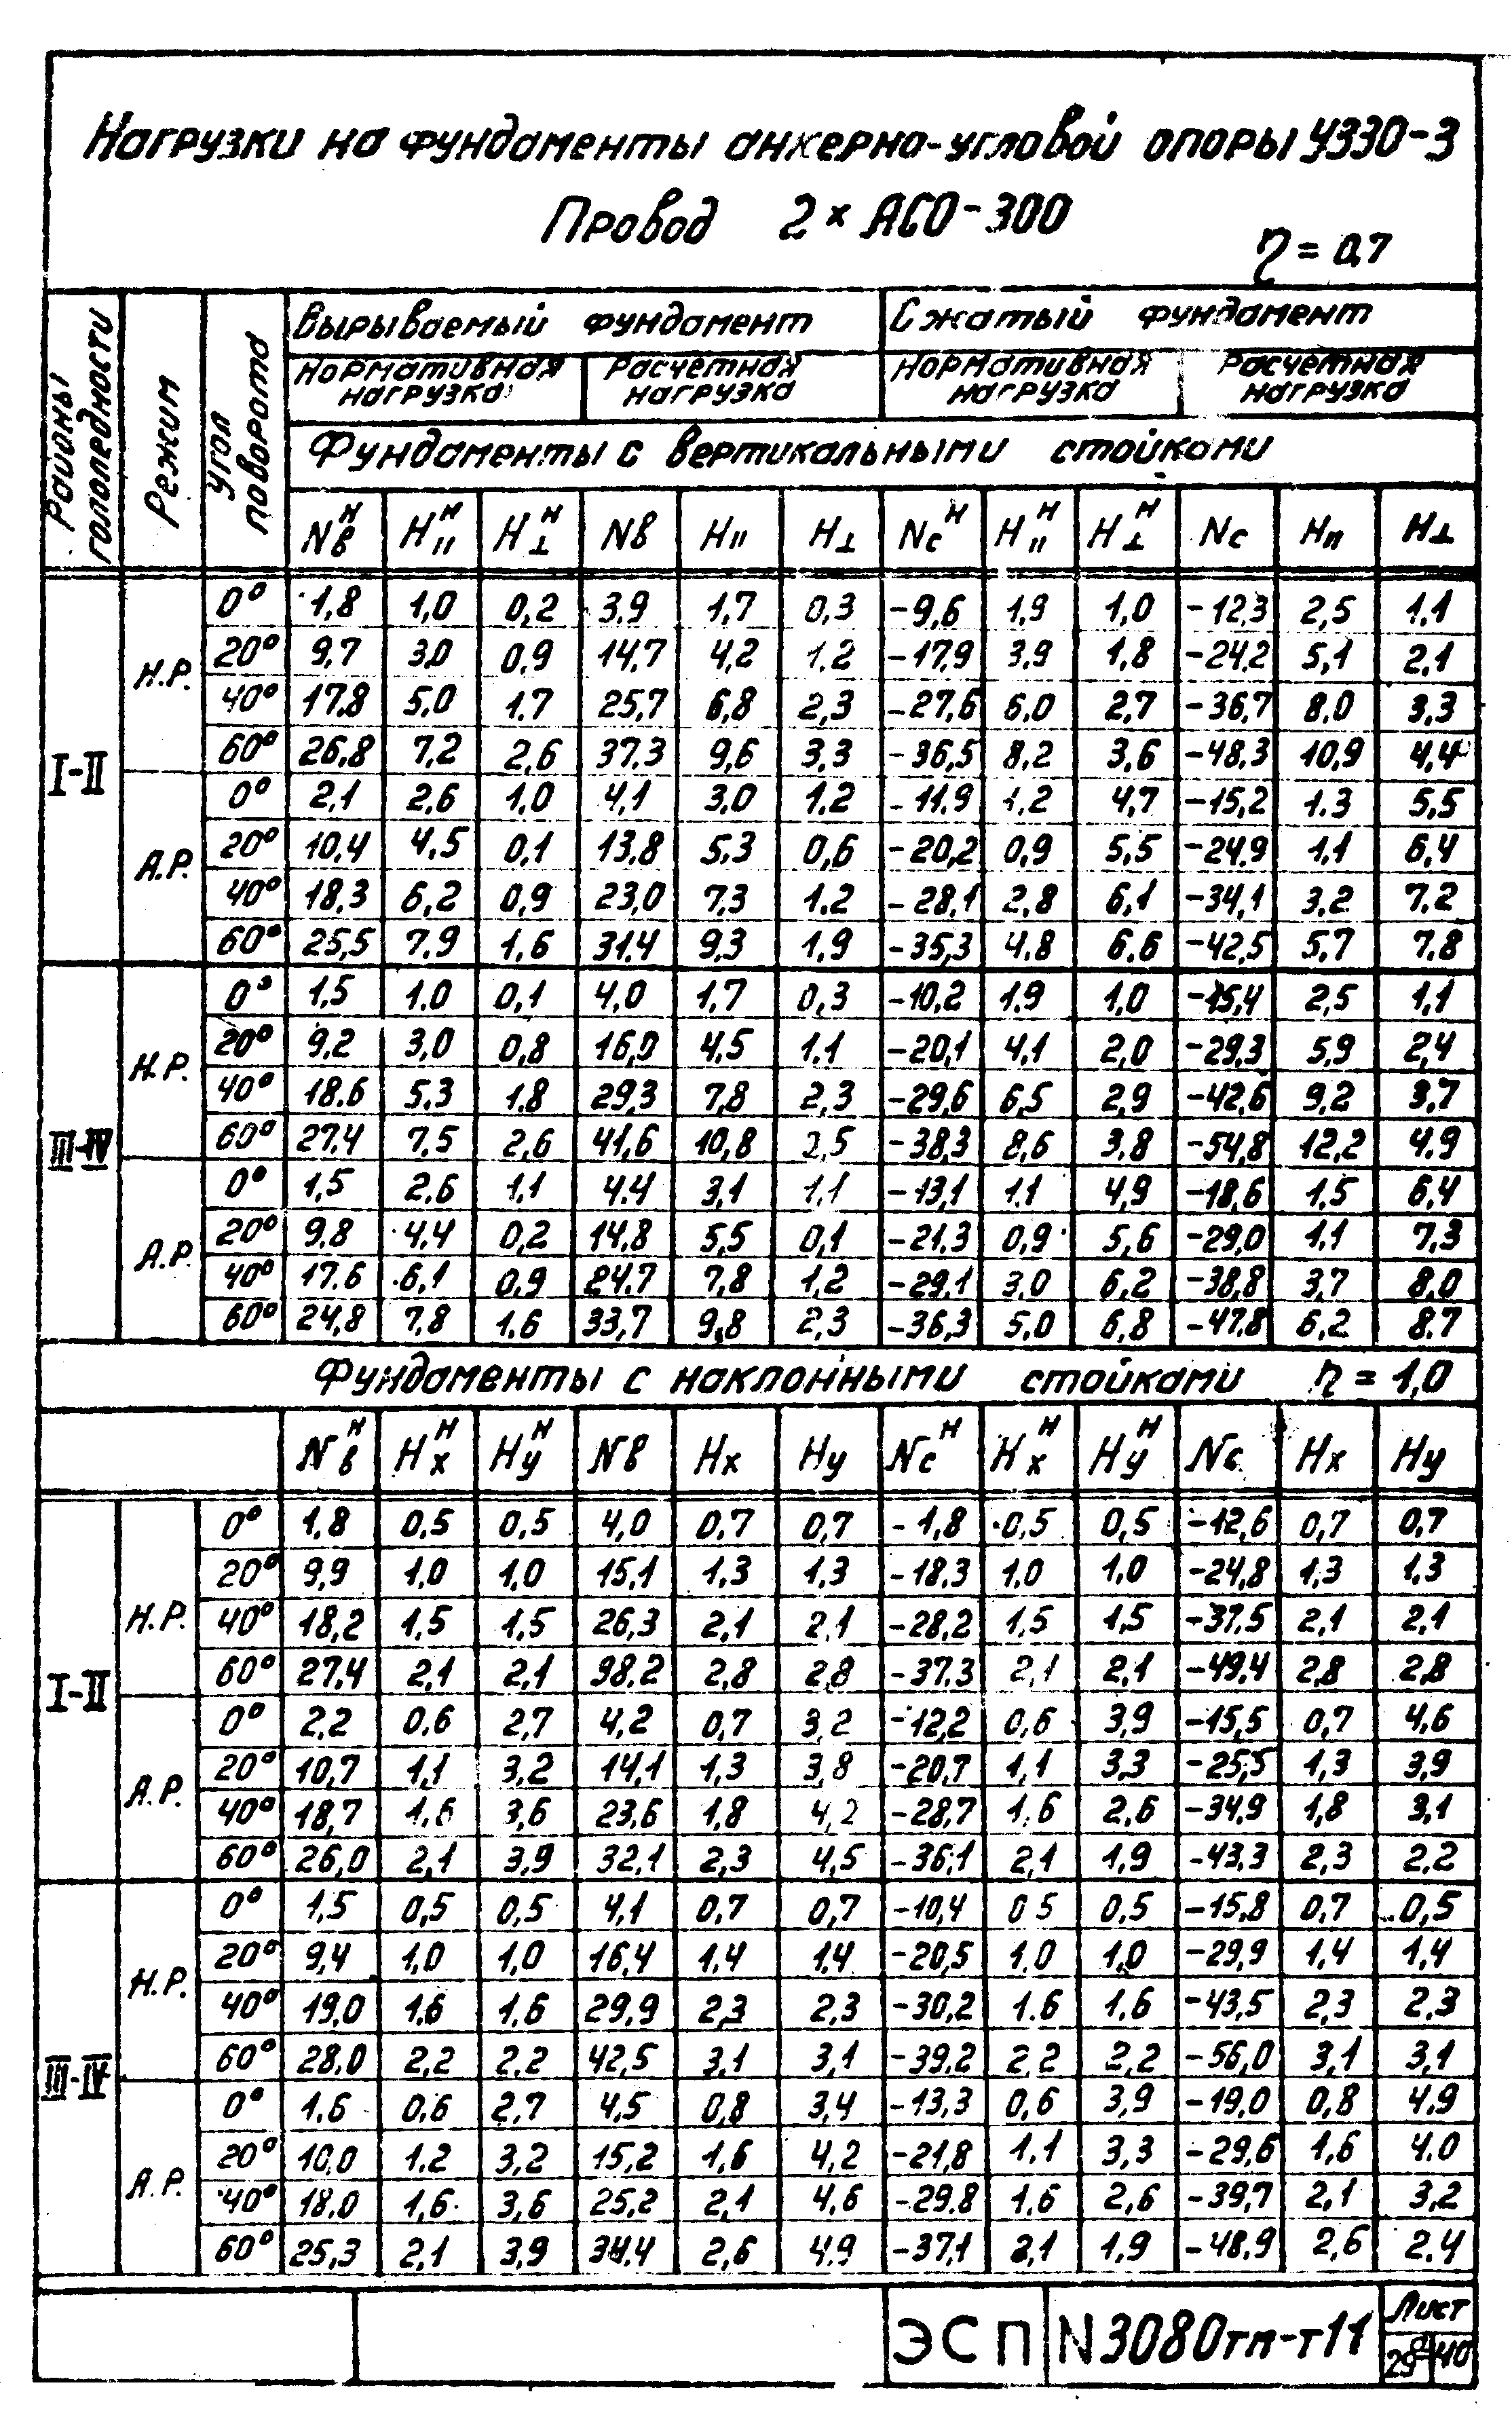 Нагрузки на фундаменты анкерно-угловой опоры У330-3
Провод 2 × АСО-300
η = 0,7
Районы гололедности
Режим
Угол поворота
Вырываемый фундамент Сжатый фундамент
Нормативная нагрузка Расчетная нагрузка Нормативная нагрузка Расчетная нагрузка
Фундаменты с вертикальными стойками
Nвᴴ H||ᴴ H⊥ᴴ Nв H|| H⊥ Nсᴴ H||ᴴ H⊥ᴴ Nс Hп H⊥
I-II
Н.Р.
0° 1,8 1,0 0,2 3,9 1,7 0,3 -9,6 1,9 1,0 -12,3 2,5 1,1
20° 9,7 3,0 0,9 14,7 4,2 1,2 -17,9 3,9 1,8 -24,2 5,1 2,1
40° 17,8 5,0 1,7 25,7 6,8 2,3 -27,6 6,0 2,7 -36,7 8,0 3,3
60° 26,8 7,2 2,6 37,3 9,6 3,3 -36,5 8,2 3,6 -48,3 10,9 4,4
А.Р.
0° 2,1 2,6 1,0 4,1 3,0 1,2 -11,9 1,2 4,7 -15,2 1,3 5,5
20° 10,4 4,5 0,1 13,8 5,3 0,6 -20,2 0,9 5,5 -24,9 1,1 6,4
40° 18,3 6,2 0,9 23,0 7,3 1,2 -28,1 2,8 6,1 -34,1 3,2 7,2
60° 25,5 7,9 1,6 31,4 9,3 1,9 -35,3 4,8 6,6 -42,5 5,7 7,8
III-IV
Н.Р.
0° 1,5 1,0 0,1 4,0 1,7 0,3 -10,2 1,9 1,0 -15,4 2,5 1,1
20° 9,2 3,0 0,8 16,0 4,5 1,1 -20,1 4,1 2,0 -29,3 5,9 2,4
40° 18,6 5,3 1,8 29,3 7,8 2,3 -29,6 6,5 2,9 -42,6 9,2 3,7
60° 27,4 7,5 2,6 41,6 10,8 -38,3 8,6 3,8 -54,8 12,2 4,9
А.Р.
0° 1,5 2,6 1,1 4,4 3,1 1,1 -13,1 1,1 4,9 -18,6 1,5 6,4
20° 9,8 4,4 0,2 14,8 5,5 0,1 -21,3 0,9 5,6 -29,0 1,1 7,3
40° 17,6 6,1 0,9 24,7 7,8 1,2 -29,1 3,0 6,2 -38,8 3,7 8,0
60° 24,8 7,8 1,6 33,7 9,8 2,3 -36,3 5,0 6,8 -47,8 6,2 8,7
Фундаменты с наклонными стойками η = 1,0
Nвᴴ Hxᴴ Hyᴴ Nв Hx Hy Nсᴴ Hxᴴ Hyᴴ Nс Hx Hy
I-II
Н.Р.
0° 1,8 0,5 0,5 4,0 0,7 0,7 -1,8 0,5 0,5 -12,6 0,7 0,7
20° 9,9 1,0 1,0 15,1 1,3 1,3 -18,3 1,0 1,0 -24,8 1,3 1,3
40° 18,2 1,5 1,5 26,3 2,1 2,1 -28,2 1,5 1,5 -37,5 2,1 2,1
60° 27,4 2,1 2,1 98,2 2,8 2,8 -37,3 2,1 2,1 -49,4 2,8 2,8
А.Р.
0° 2,2 0,6 2,7 4,2 0,7 3,2 -12,2 0,6 3,9 -15,5 0,7 4,6
20° 10,7 1,1 3,2 14,1 1,3 3,8 -20,7 1,1 3,3 -25,5 1,3 3,9
40° 18,7 1,6 3,6 23,6 1,8 4,2 -28,7 1,6 2,6 -34,9 1,8 3,1
60° 26,0 2,1 3,9 32,1 2,3 4,5 -36,1 2,1 1,9 -43,3 2,3 2,2
III-IV
Н.Р.
0° 1,5 0,5 0,5 4,1 0,7 0,7 -10,4 0 5 0,5 -15,8 0,7 0,5
20° 9,4 1,0 1,0 16,4 1,4 1,4 -20,5 1,0 1,0 -29,9 1,4 1,4
40° 19,0 1,6 1,6 29,9 2,3 2,3 -30,2 1,6 1,6 -43,5 2,3 2,3
60° 28,0 2,2 2,2 42,5 3,1 3,1 -39,2 2,2 2,2 -56,0 3,1 3,1
А.Р.
0° 1,6 0,6 2,7 4,5 0,8 3,4 -13,3 0,6 3,9 -19,0 0,8 4,9
20° 10,0 1,2 3,2 15,2 1,6 4,2 -21,8 1,1 3,3 -29,6 1,6 4,0
40° 18,0 1,6 3,6 25,2 2,1 4,6 -29,8 1,6 2,6 -39,7 2,1 3,2
60° 25,3 2,1 3,9 34,4 2,6 4,9 -37,1 2,1 1,9 -48,9 2,6 2,4
ЭСП N3080тм-т11 Лист
29 40